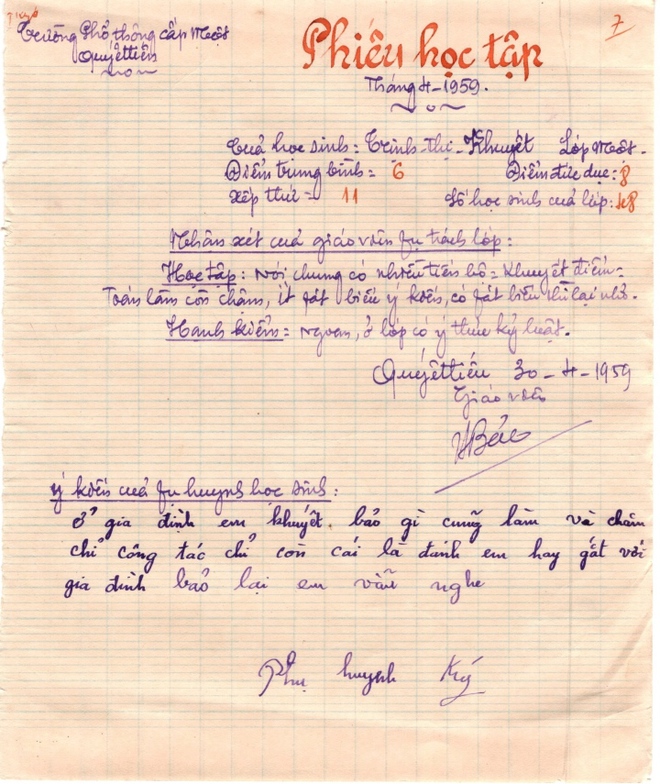 7
Trường Phổ thông cấp Một
Quyếttiến
Phiếu học tập
Tháng 4-1959.
Của học sinh: Trịnh-thị-Khuyết Lớp Một.
Điểm trung bình = 6 Điểm đức dục: 8
Xếp thứ = 11 Số học sinh của lớp: 48
Nhận xét của giáo viên fụ trách lớp:
Học tập: Nói chung có nhiều tiến bộ - Khuyết điểm =
Toán làm còn chậm, ít fát biểu ý kiến, có fát biểu thì lại nhỏ.
Hạnh kiểm: Ngoan, ở lớp có ý thức kỷ luật.
Quyếttiến 30-4-1959
Giáo viên
VBảo
Ý kiến của fụ huynh học sinh:
ở gia định em khuyết bảo gì cungx làm và chăm
chỉ công tác chỉ còn cái là đánh em hay gắt với
gia đình bảo lại em vẫn nghe
Phụ huynh Ký